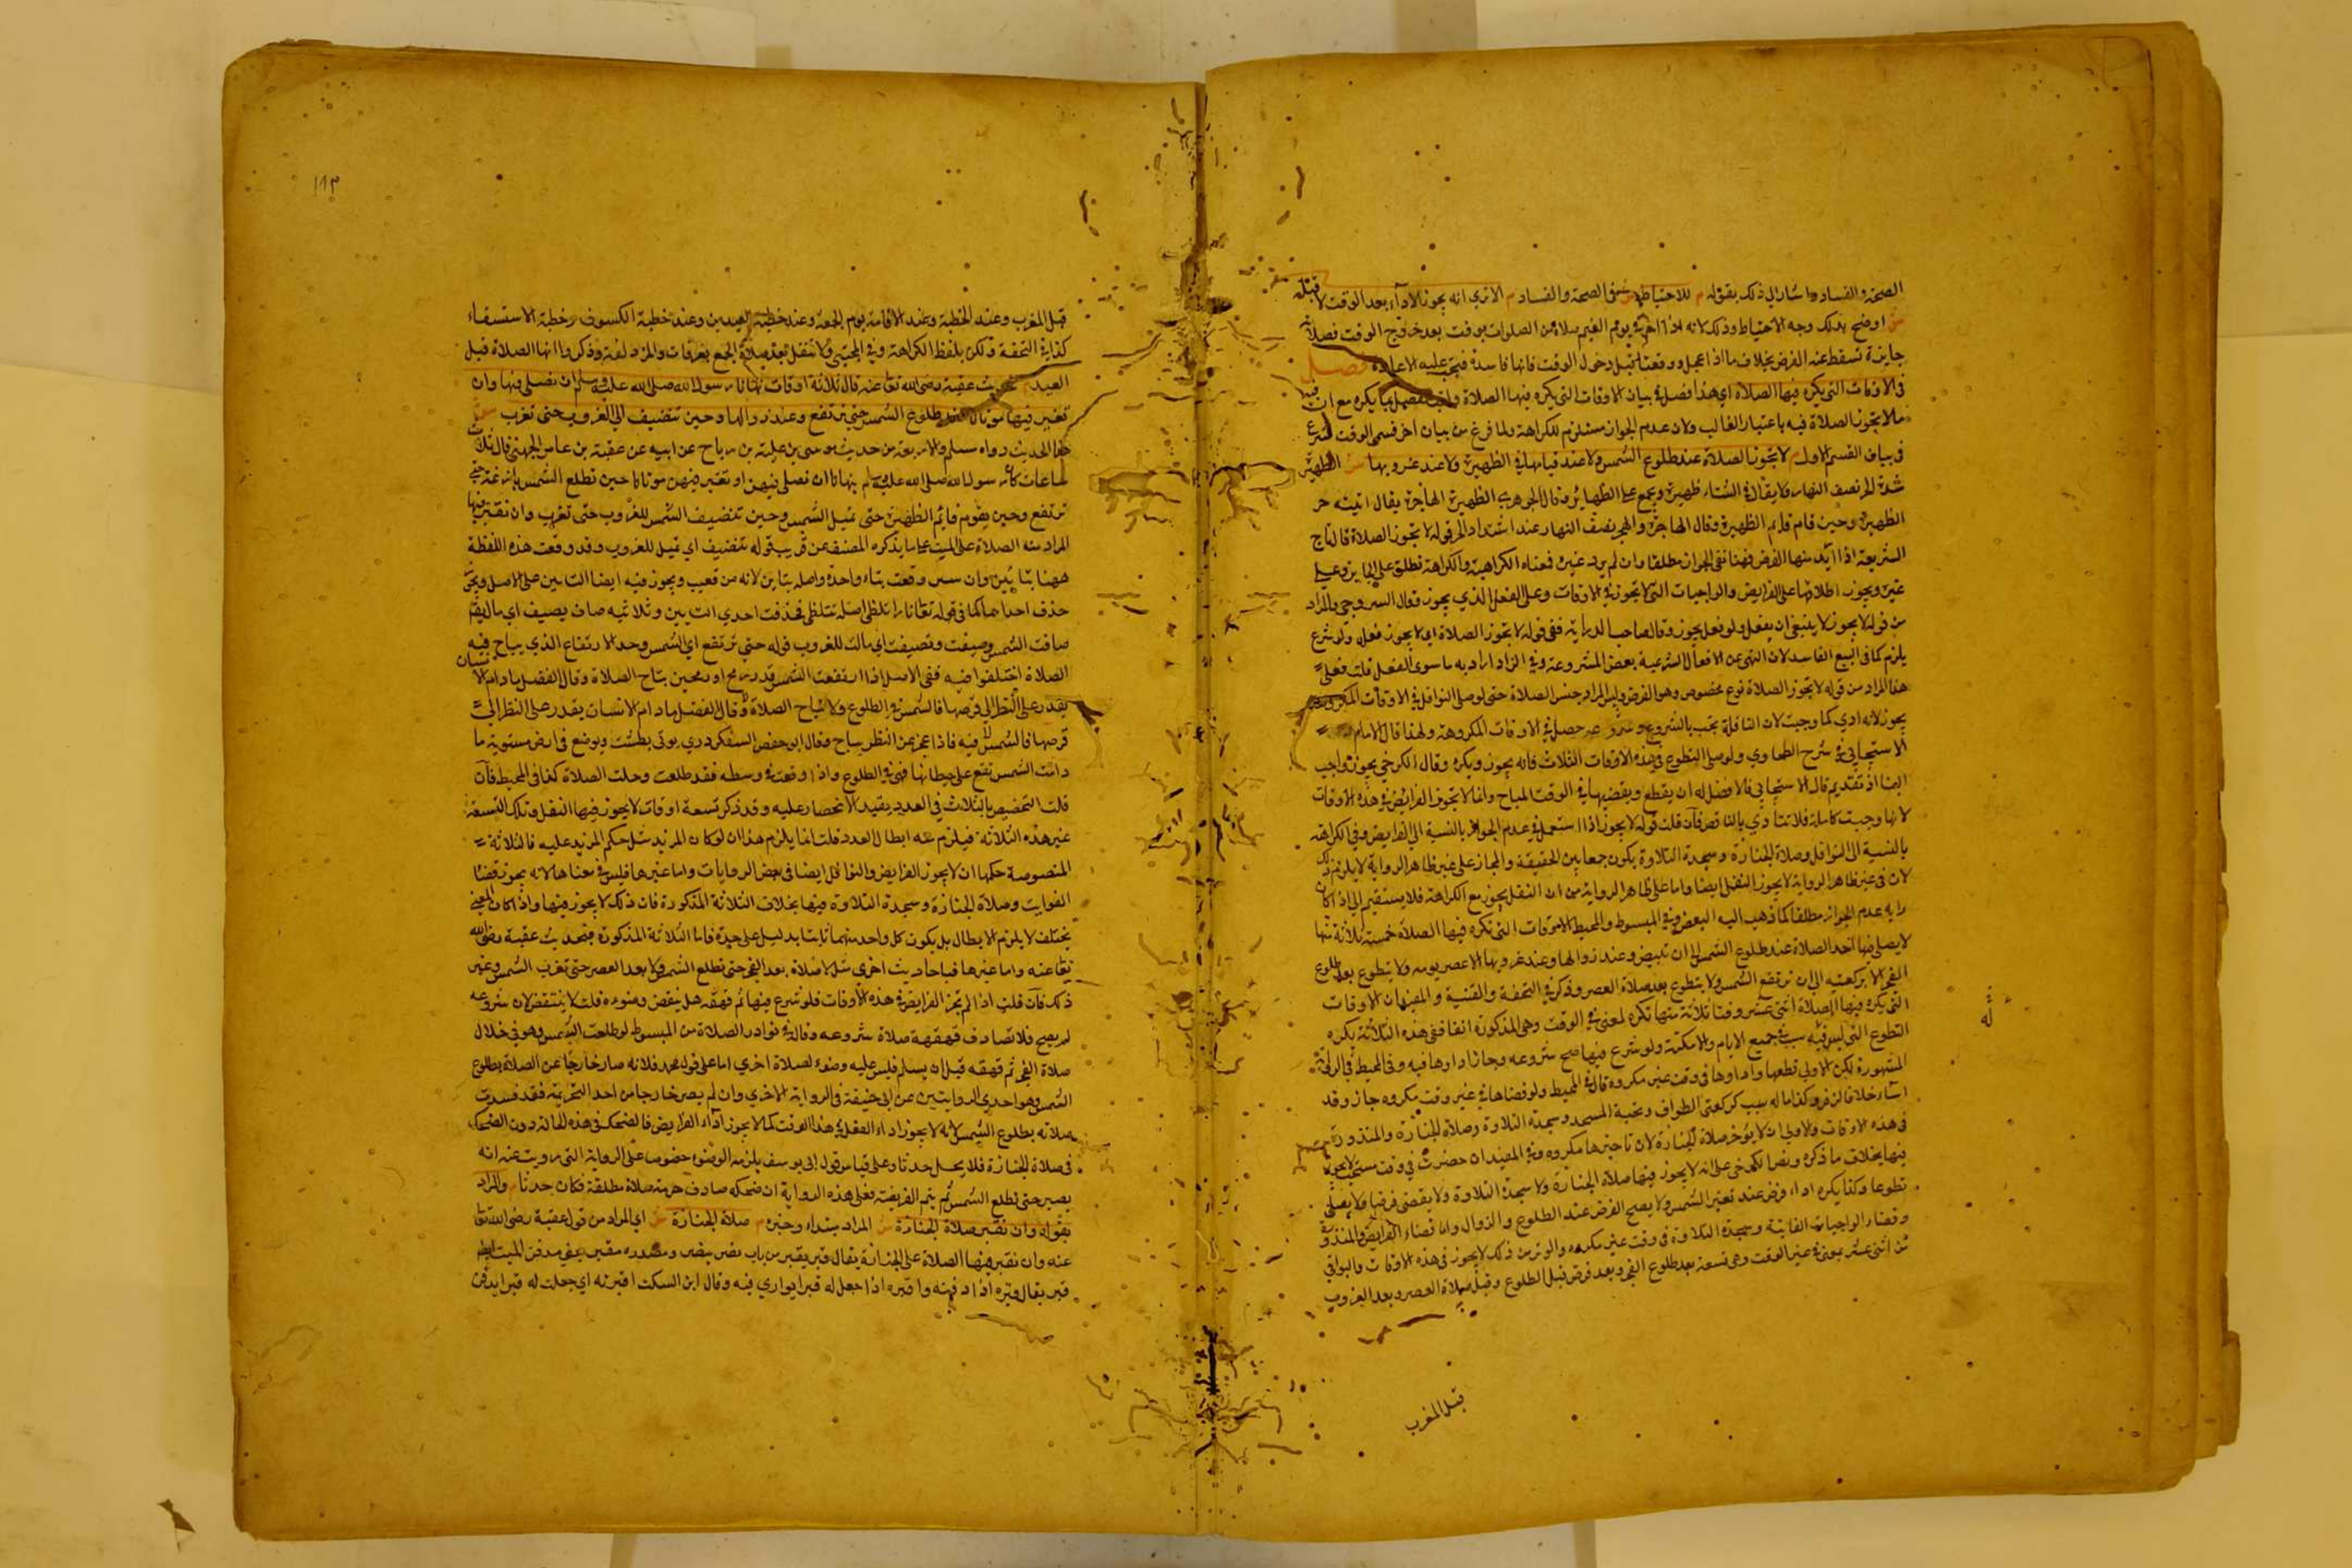 الصحة والفساد واشار الي ذلك بقوله م للاحتياط ش في الصحة والفساد م الا تري انه يجوز الادآء بعد الوقت لا قبله
ش اوضح بذلك وجه الاحتياط وذلك لانه اذا اخر في يوم الغيم صلاة من الصلوات يوقت بعد خروج الوقت فصلاته
جايزة تسقط عنه الفرض بخلاف ما اذا عجل ووقعت قبل دخول الوقت فانها فاسدة فيجب عليه الاعادة فصل
في الاوقات التي يكره فيها الصلاة اي هذا فصل في بيان الاوقات التي يكره فيها الصلاة يكره مع ان فيه
ما لا يجوز الصلاة فيه باعتبار الغالب ولان عدم الجواز مستلزم للكراهة ولما فرغ من بيان احد قسمي الوقت شرع
في بيان القسم الاول م لا يجوز الصلاة عند طلوع الشمس ولا عند قيامها في الظهيرة ولا عند غروبها ش الظهيرة
شدة الحر نصف النهار ولا يقال في الشتاء ظهيرة ويجمع على الظهاير وقال الجوهري الظهيرة الهاجرة يقال اتيته حر
الظهيرة وحين قام قايم الظهيرة وقال الهاجرة والهجير نصف النهار عند اشتداد الحر قوله لا يجوز الصلاة قال تاج
الشريعة اذا اريد منها الفرض فهنا نفي الجواز مطلقا وان لم يرد غيره فمعناه الكراهية والكراهة تطلق على الجايز وعلى
غيره ويجوز اطلاقها على الفرايض والواجبات التي لا يجوز في الاوقات وعلى الفعل الذي يجوز وقال السروجي والمراد
من قوله لا يجوز لا ينبغي ان يفعل ولو فعل يجوز وقال صاحب الدراية ففي قوله لا يجوز الصلاة اي لا يجوز فعله ولو شرع
يلزم كما في البيع الفاسد لان النهي عن الافعال الشرعية بعض المشروعية وفي الزاد اراد به ما سوى النفل قلت فعلى
هذا المراد من قوله لا يجوز الصلاة نوع مخصوص وهو الفرض وليس المراد جنس الصلاة حتى لو صلى النوافل في الاوقات المكروهة
يجوز لانه ادي كما وجبت لان النافلة تجب بالشروع وشروعه حصل في الاوقات المكروهة ولهذا قال الامام
الاسبيجابي في شرح الطحاوي ولو صلى التطوع في هذه الاوقات الثلاث فانه يجوز ويكره وقال الكرخي يجوز واجب
الينا اذ تقديم قال الاسبيجابي فالافضل له ان يقطع ويقضيها في الوقت المباح وانما لا يجوز الفرايض في هذه الاوقات
لانها وجبت كاملة فلا تتادي بالناقص فان قلت قوله لا يجوز اذا استعمل في عدم الجواز بالنسبة الي الفرايض وفي الكراهة
بالنسبة الى النوافل وصلاة الجنازة وسجدة التلاوة يكون جمعا بين الحقيقة والمجاز على غير ظاهر الرواية لا يلزم ذلك
لان في غير ظاهر الرواية لا يجوز النفل ايضا واما على ظاهر الرواية من ان النفل يجوز مع الكراهة فلا يستقيم الي اذا كان
رايه عدم الجواز مطلقا كما ذهب اليه البعض وفي المبسوط والمحيط الاوقات التي تكره فيها الصلاة خمسة ثلاثة منها
لا يصلي فيها احد الصلاة عند طلوع الشمس الى ان تبيض وعند زوالها وعند غروبها الا عصر يومه ولا يتطوع بعد طلوع
الفجر الا بركعتيه الى ان ترتفع الشمس ولا يتطوع بعد صلاة العصر وذكر في التحفة والقنية والمفيد ان الاوقات
التي يكره فيها الصلاة اثني عشر وقتا ثلاثة منها تكره لمعنى في الوقت وهي المذكورة انفا ففي هذه الثلاثة يكره
التطوع التي ليس فيه سبب في جميع الايام والامكنة ولو شرع فيها صح شروعه وجاز اداوها فيه وفي المحيط في الرواية
المشهورة لكن الاولي قطعها واداوها في وقت غير مكروه قال في المحيط ولو قضاها في غير وقت مكروه جاز وقد
اساء خلافا لزفر وكذا ما له سبب كركعتي الطواف وتحية المسجد وسجدة التلاوة وصلاة الجنازة والمنذورة
في هذه الاوقات والاولي ان لا يؤخر صلاة الجنازة لان تاخيرها مكروه وفي المفيد ان حضرت في وقت مستحب لا يجوز
فيها بخلاف ما ذكره ونص الكرخي على انه لا يجوز فيها صلاة الجنازة ولا سجدة التلاوة ولا يقضي فرضا ولا يصلي
تطوعا وكذا يكره اداء فرض عند تغير الشمس ولا يصح الفرض عند الطلوع والزوال وان قضاء الفرايض والمنذورة
وقضاء الواجبات الفايتة وسجدة التلاوة في وقت غير مكروه والوتر من ذلك لا يجوز في هذه الاوقات والبواقي
من اثني عشر بمعنى في غير الوقت وهي تسعة بعد طلوع الفجر وبعد فرض قبل الطلوع وقبل صلاة العصر وبعد الغروب
قبل المغرب
١١٣
قبل المغرب وعند الخطبة وعند الاقامة يوم الجمعة وعند خطبة العيدين وعند خطبة الكسوف وخطبة الاستسقاء
كذا في التحفة ولكن بلفظ الكراهة وفي المجتبى ولا يتنفل بعد صلاة الجمع بعرفات والمزدلفة وذكروا انها الصلاة قبل
العيد م حديث عقبة رضي الله تعا عنه قال ثلاثة اوقات نهانا رسول الله صلى الله عليه وسلم ان نصلي فيها وان
نقبر فيها موتانا عند طلوع الشمس حتى ترتفع وعند زوالها وحين تتضيف الي الغروب حتى تغرب ش
هذا الحديث رواه مسلم والاربعة من حديث موسى بن علي بن رباح عن ابيه عن عقبة بن عامر الجهني قال ثلاث
ساعات كان رسول الله صلى الله عليه وسلم ينهانا ان نصلي فيهن او نقبر فيهن موتانا حين تطلع الشمس بازغة حتى
ترتفع وحين يقوم قايم الظهيرة حتى تميل الشمس وحين تتضيف الشمس للغروب حتى تغرب وان نقبر فيها
المراد منه الصلاة على الميت على ما يذكره المصنف عن قريب قوله تتضيف اي تميل للغروب وقد وقعت هذه اللفظة
ههنا بتائين وان وقعت بتاء واحدة واصله بتاين لانه من قعيب ويجوز فيه ايضا التاين على الاصل ويجوز
حذف احداهما كما في قوله تعا نارا تلظى اصله تتلظى فحذفت احدي التايين وثلاثيه ضاف يضيف اي مال يقم
ضافت الشمس وضيفت وتضيفت اي مالت للغروب قوله حتى ترتفع اي الشمس وحد الارتفاع الذي يباح فيه
الصلاة اختلفوا فيه ففي الاصل اذا ارتفعت الشمس قدر رمح او رمحين تباح الصلاة وقال الفضل ما دام الانسان
يقدر على النظر الي قرصها فالشمس في الطلوع ولا تباح الصلاة وقال الفضل ما دام الانسان يقدر على النظر الي
قرصها فالشمس فيه فاذا عجز عن النظر يباح وقال ابو حفص السفكردري يوتى بطشت ويوضع في ارض مستوية ما
دامت الشمس تقع على حيطانها فهي في الطلوع واذا وقعت في وسطه فقد طلعت وحلت الصلاة كذا في المحيط فان
قلت التخصيص بالثلاث في العدد يقيد الانحصار عليه وقد ذكر تسعة اوقات لا يجوز فيها النفل وتلك التسعة
غير هذه الثلاثة فيلزم منه ابطال العدد قلت انما يلزم هذا ان لو كان المزيد مثل حكم المزيد عليه فالثلاثة
المنصوصة حكمها ان لا يجوز الفرايض والنوافل ايضا في بعض الروايات واما غيرها فليس في معناها لانه يجوز قضاء
الفوايت وصلاة الجنازة وسجدة التلاوة فيها بخلاف الثلاثة المذكورة فان ذلك لا يجوز فيها واذا كان المعنى
يختلف لا يلزم الابطال بل يكون كل واحد منهما ثابتا بدليل على حدة فاما الثلاثة المذكورة فبحديث عقبة رضي الله
تعا عنه واما غيرها فباحاديث اخرى مثل لا صلاة بعد الفجر حتى تطلع الشمس ولا بعد العصر حتى تغرب الشمس وغير
ذلك فان قلت اذا لم تجز الفرايض في هذه الاوقات فلو شرع فيها ثم قهقه هل ينقض وضوءه قلت لا ينتقض لان شروعه
لم يصح فلا تصادف قهقهة صلاة شروعه وقال في نوادر الصلاة من المبسوط لو طلعت الشمس وهو في خلال
صلاة الفجر ثم قهقه قبل ان يسلم فليس عليه وضوء لصلاة اخري اما على قول محمد فلانه صار خارجا عن الصلاة بطلوع
الشمس وهو احدي الروايتين عن ابي حنيفة في الرواية الاخري وان لم يصر خارجا من احد التحريمة فقد فسدت
صلاته بطلوع الشمس لانه لا يجوز اداء النفل في هذا الوقت كما لا يجوز اداء الفرايض فالضحك في هذه الحالة دون الضحك
في صلاة الجنازة فلا يجعل حدثا وعلى قياس قول ابي يوسف يلزمه الوضوء خصوصا على الرواية التي رويت عنه انه
يصبر حتى تطلع الشمس ثم يتم الفريضة فعلى هذه الرواية ان ضحكه صادف حرمة صلاة مطلقة فكان حدثا م والمراد
بقوله وان نقبر صلاة الجنازة ش المراد مبتداء وخبره م صلاة الجنازة ش اي المراد من قول عقبة رضي الله تعا
عنه وان نقبر فيها الصلاة على الجنازة يقال قبر يقبر من باب نصر ينصر ومصدره مقبر يعني مدفن الميت
قبر يقال قبره اذا دفنه واقبره اذا جعل له قبرا يواري فيه وقال ابن السكت اقبرته اي جعلت له قبرا يدفن